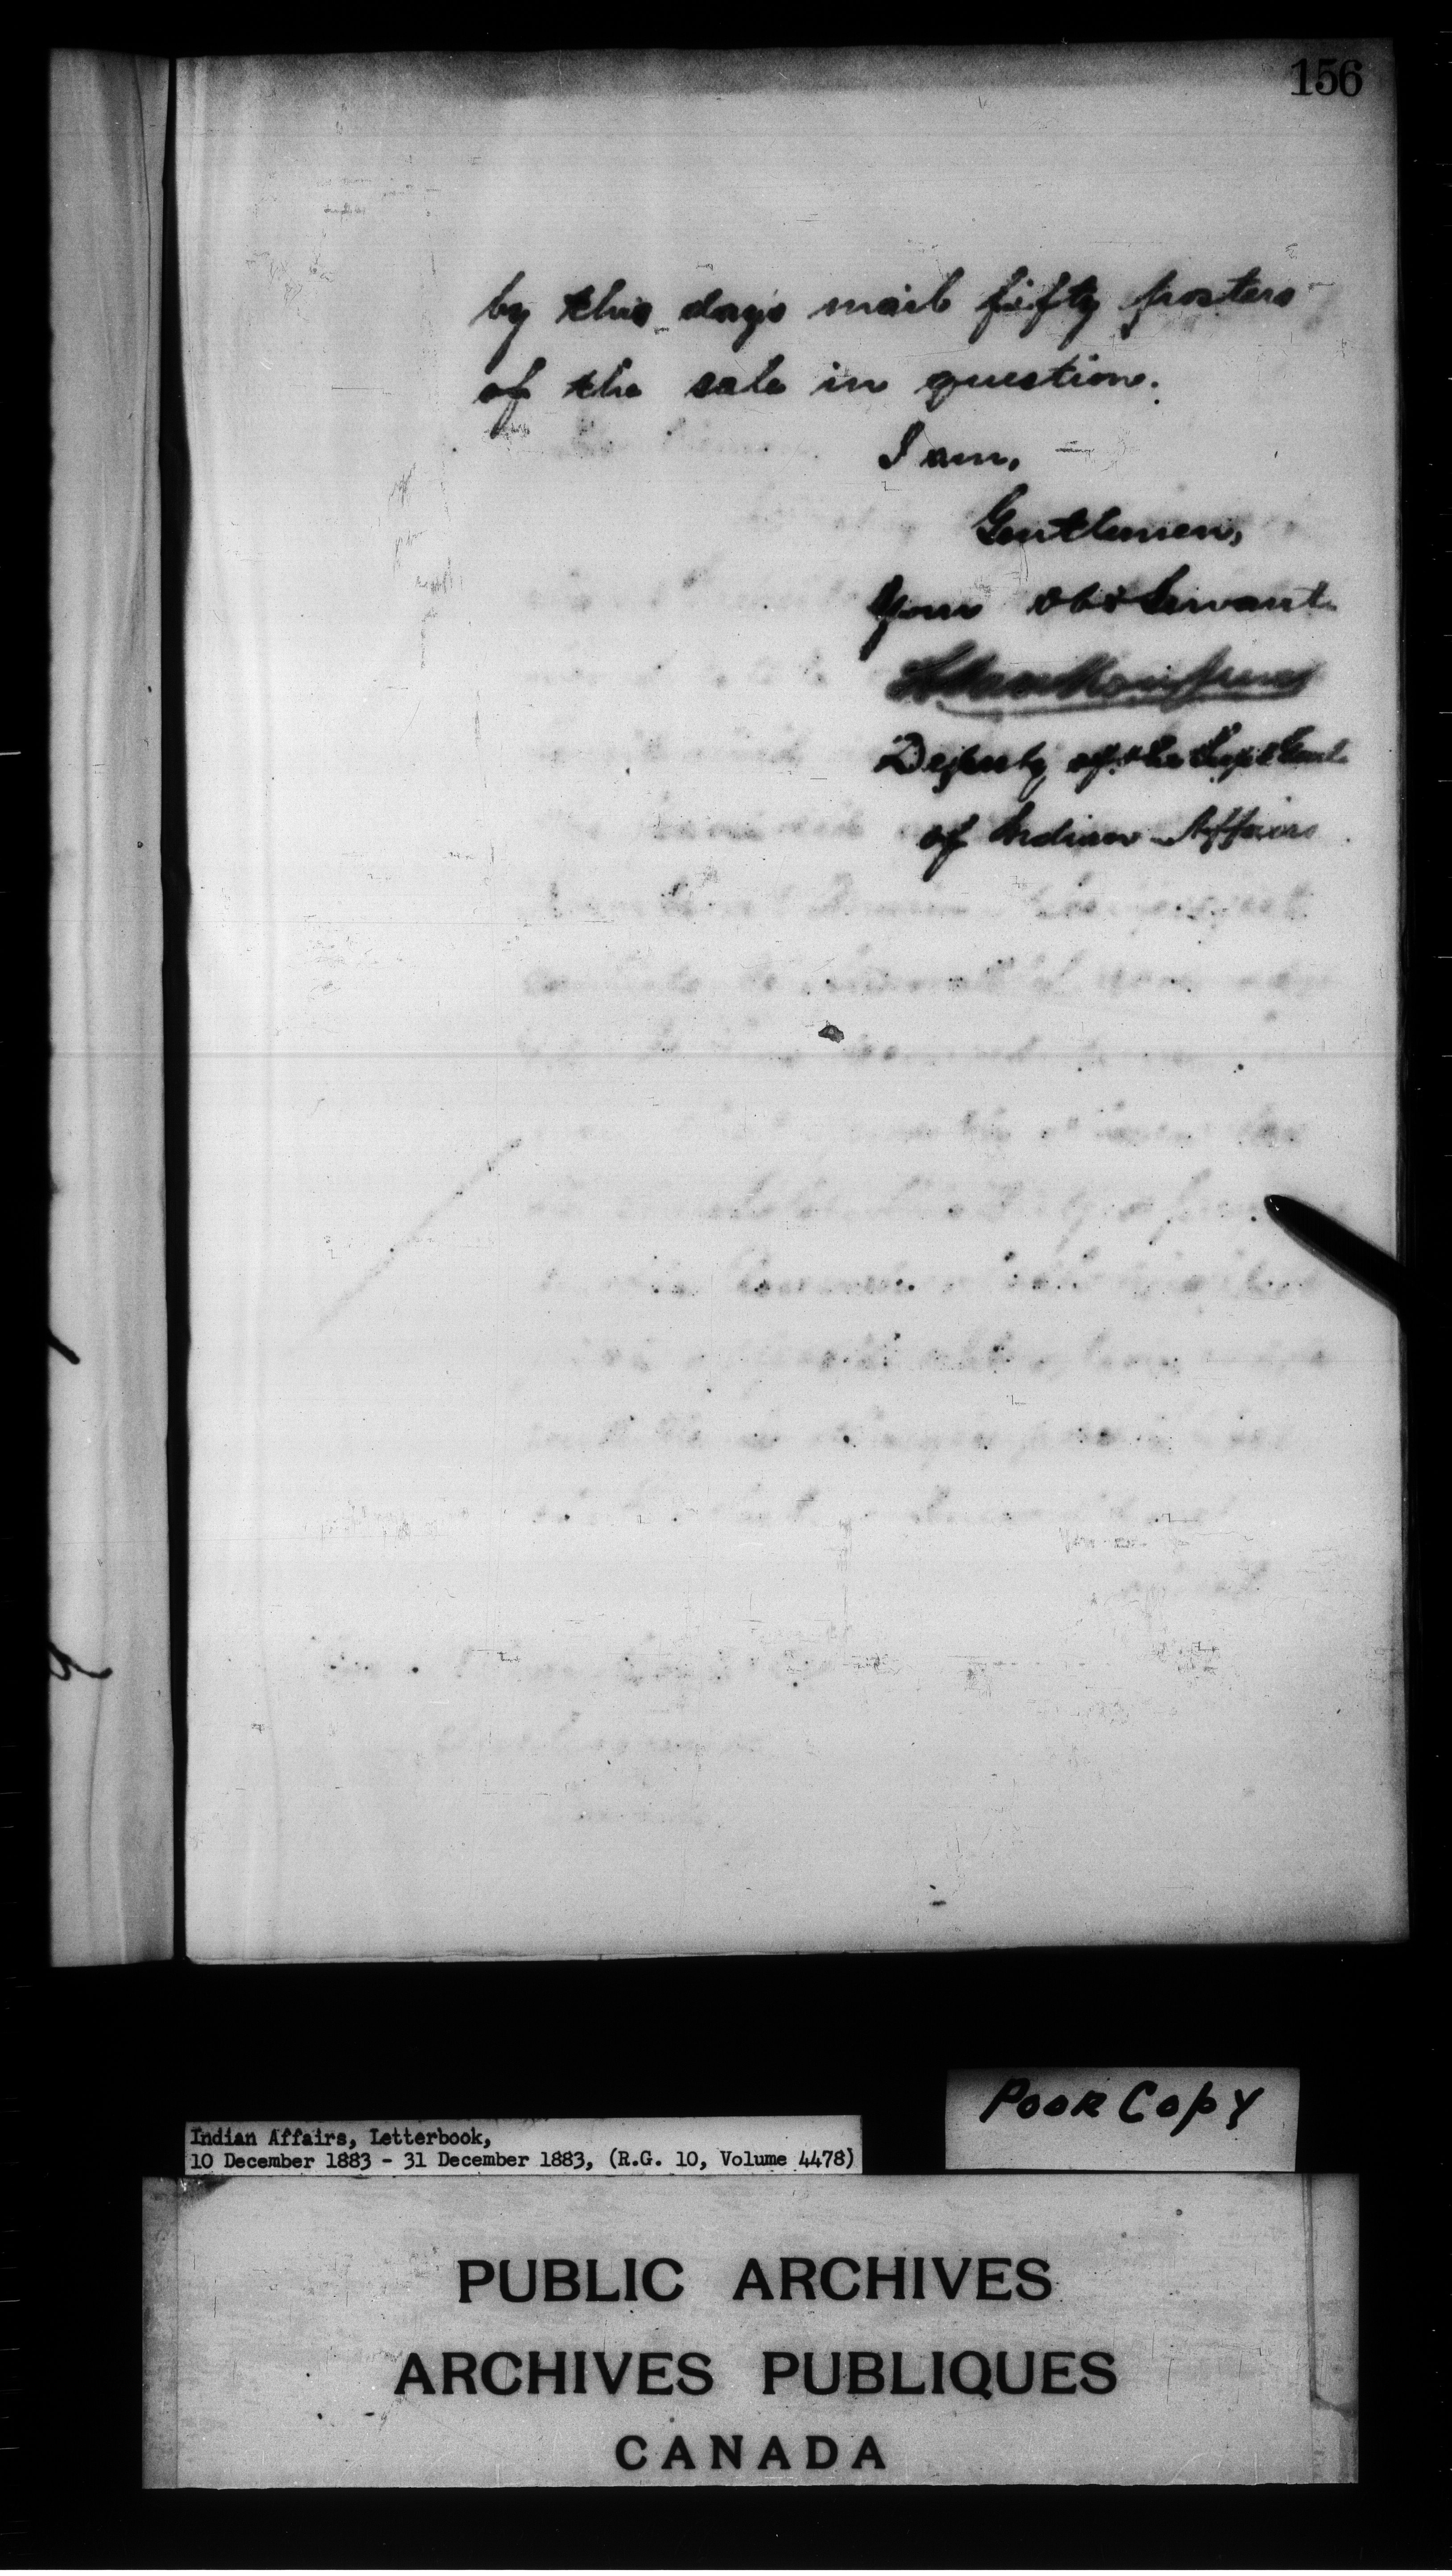 156
by this day's mail fifty posters
of the sale in question.
I am,
Gentlemen,
Your obt Servant
Deputy of the Supt Genl
of Indian Affairs
POOR COPY
Indian Affairs, Letterbook,
10 December 1883 - 31 December 1883, (R.G. 10, Volume 4478)
PUBLIC ARCHIVES
ARCHIVES PUBLIQUES
CANADA